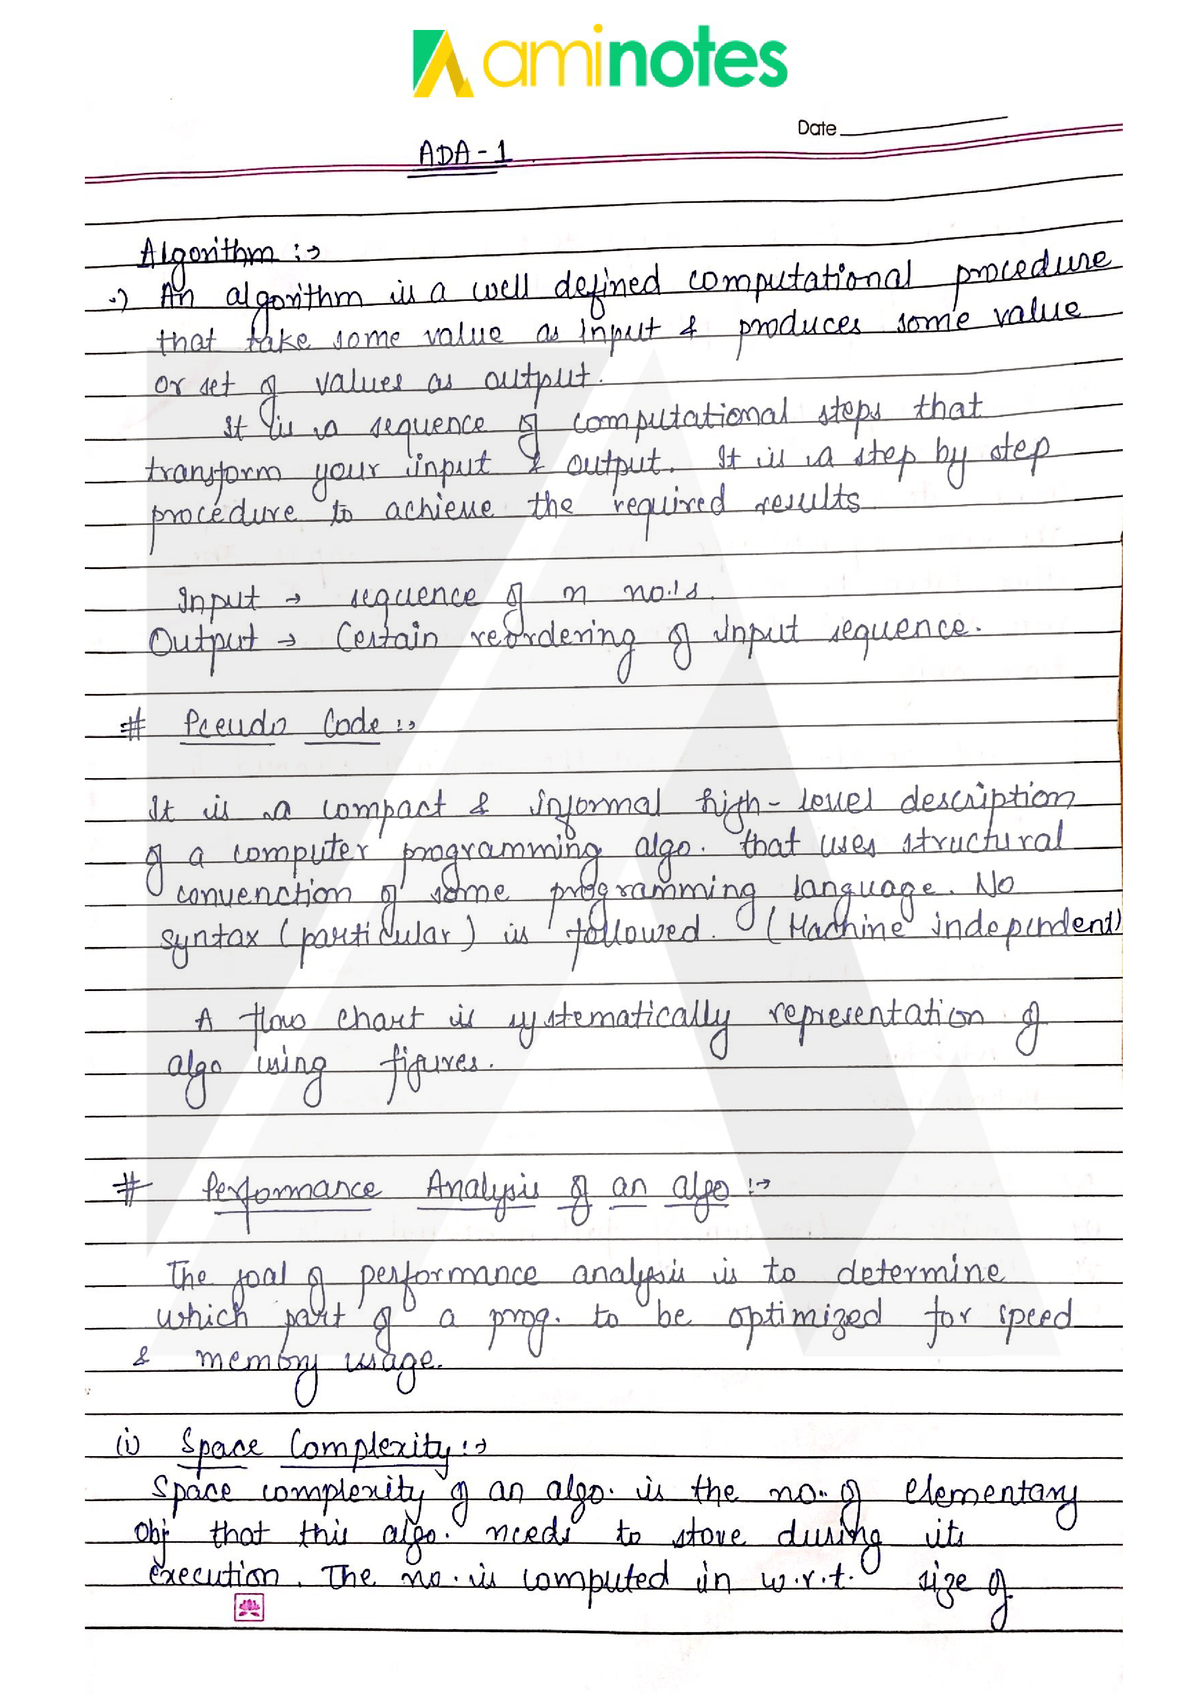 aminotes
Date
ADA - 1
Algorithm :→
•) An algorithm is a well defined computational procedure
that take some value as input & produces some value
or set of values as output.
It is a sequence of computational steps that
transform your input & output. It is a step by step
procedure to achieve the required results
Input → sequence of n no.'s.
Output → Certain reordering of input sequence.
# Pseudo Code :→
It is a compact & informal high-level description
of a computer programming algo. that uses structural
convenction of some programming language. No
syntax (particular) is followed. (Machine independent)
A flow chart is systematically representation of
algo using figures.
# Performance Analysis of an algo :→
The goal of performance analysis is to determine
which part of a prog. to be optimized for speed
& memory usage.
(i) Space Complexity :→
Space complexity of an algo. is the no. of elementary
obj that this algo. needs to store during its
execution. The no. is computed in w.r.t. size of